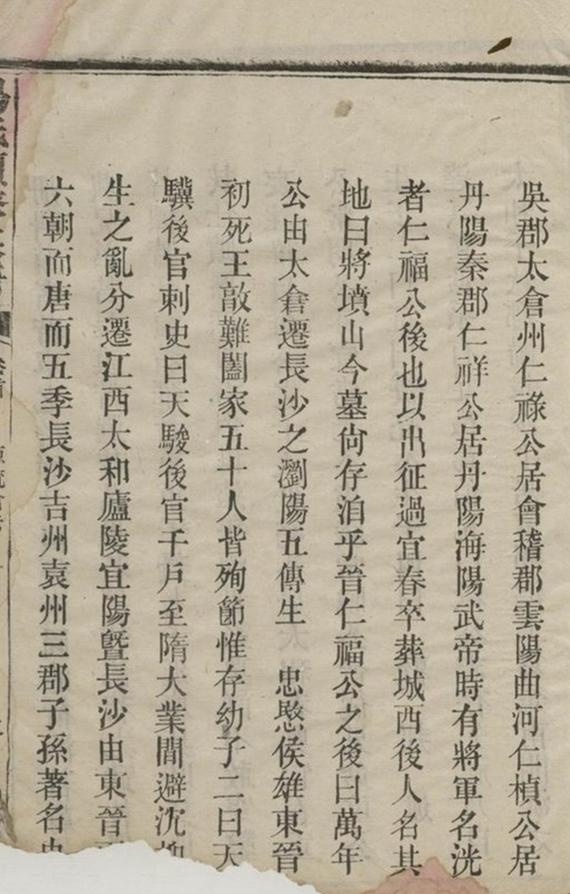 吳郡太倉州仁祿公居會稽郡雲陽曲河仁楨公居
丹陽秦郡仁祥公居丹陽海陽武帝時有將軍名洸
者仁福公後也以出征過宜春卒葬城西後人名其
地曰將墳山今墓尙存洎乎晉仁福公之後曰萬年
公由太倉遷長沙之瀏陽五傳生 忠愍侯雄東晉
初死王敔難闔家五十人皆殉節惟存幼子二曰天
驥後官刺史曰天駿後官千戶至隋大業間避沈
生之亂分遷江西太和廬陵宜陽暨長沙由東晉
六朝而唐而五季長沙吉州袁州三郡子孫著名